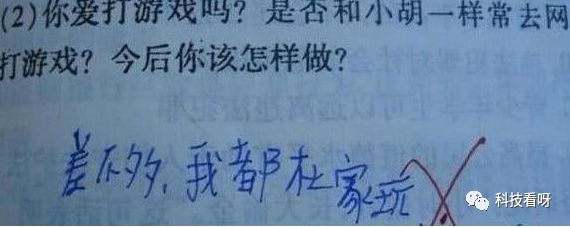 (2)你爱打游戏吗？是否和小胡一样常去网
打游戏？今后你该怎样做？
差不多，我都在家玩
科技看呀